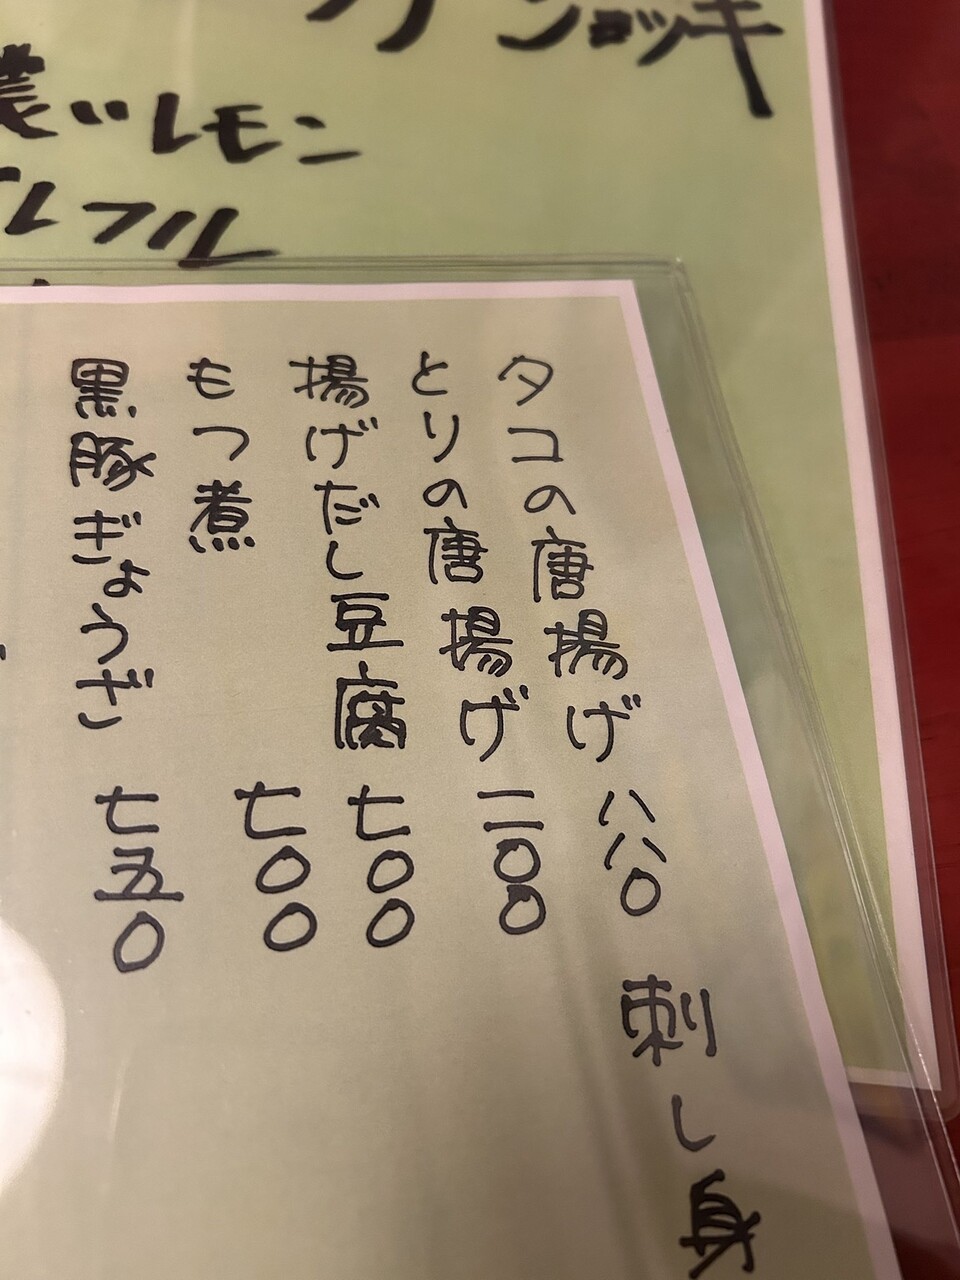 ジョッキ
レモン
フル
タコの唐揚げ 八八〇
とりの唐揚げ 一一〇〇
揚げだし豆腐 七〇〇
もつ煮 七〇〇
黒豚ぎょうざ 七五〇
刺し身